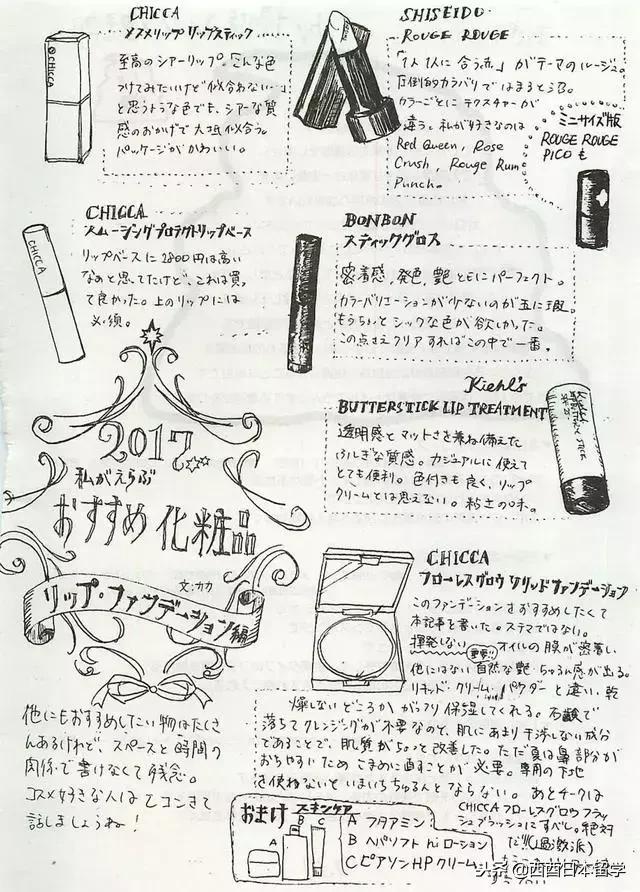 CHICCA
メスメリップ リップスティック
至高のシアーリップ。「こんな色
つけてみたいけど似合わない…」
と思うような色でも、シアーな質
感のおかげで大抵似合う。
パッケージがかわいい。
CHICCA
SHISEIDO
ROUGE ROUGE
「1人1人に合う赤」がテーマのルージュ。
圧倒的カラバリではまると沼。
カラーごとにテクスチャーが
違う。私が好きなのは
Red Queen, Rose
Crush, Rouge Rum
Punch。
ミニサイズ版
ROUGE ROUGE
PICO も
CHICCA
スムージングプロテクトリップベース
リップベースに2800円は高い
なぁと思ってたけど、これは買っ
て良かった。上のリップには
必須。
CHICCA
BONBON
スティックグロス
密着感、発色、艶ともにパーフェクト。
カラーバリエーションが少ないのが玉に瑕。
もうちょっとシックな色が欲しかった。
この点さえクリアすればこの中で一番。
Kiehl's
BUTTERSTICK LIP TREATMENT
透明感とマットさを兼ね備えた
ふしぎな質感。カジュアルに使えて
とても便利。色付きも良く、リップ
クリームとは思えない。粘土の味。
2017
私がえらぶ
おすすめ化粧品
文:カカ
リップ・ファンデーション編
CHICCA
フローレスグロウ ソリッドファンデーション
このファンデーションをおすすめしたくて
本記事を書いた。ステマではない。
揮発しない 重要!! オイルの膜が密着し、
他にはない自然な艶・ちゅるん感が出る。
リキッド・クリーム・パウダーと違い、乾
燥しないどころかがっつり保湿してくれる。石鹸で
落ちてクレンジングが不要なのと、肌にあまり干渉しない成分
であることで、肌質がちょっと改善した。ただ夏は鼻部分が
おちやすいため こまめに直すことが必要。専用の下地
を使わないといまいちちゅるんとならない。あとチークは
CHICCA フローレスグロウ フラッ
シュブラッシュにすべし。絶対
だ!!(過激派)
他にもおすすめしたい物はたくさ
んあるけれど、スペースと時間の
関係で書けなくて残念。
コスメ好きな人はエコンさて
話しましょうね!
おまけ スキンケア
A B C
A フタアミン
B ヘパソフト hi ローション
C ピアソンHPクリーム
头条@西酉日本留学